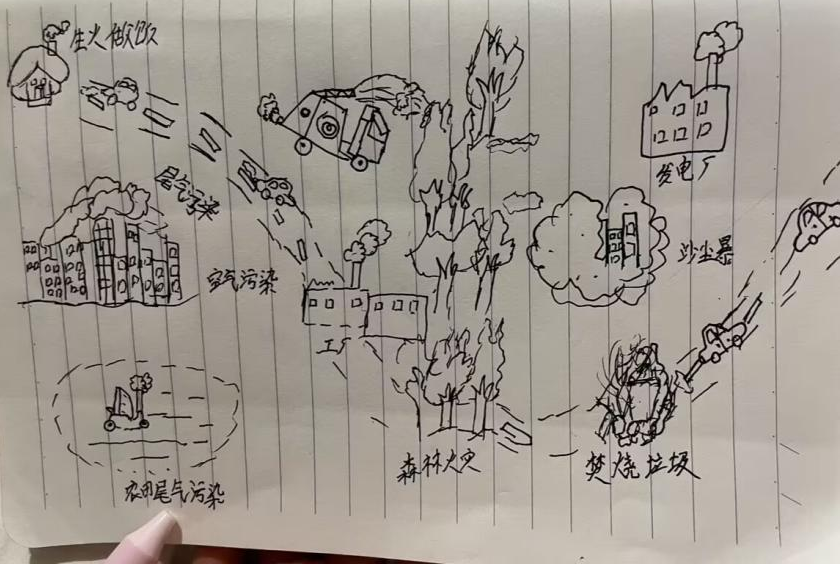 生火做饭
发电厂
尾气污染
沙尘暴
空气污染
工厂
森林火灾
焚烧垃圾
农田尾气污染